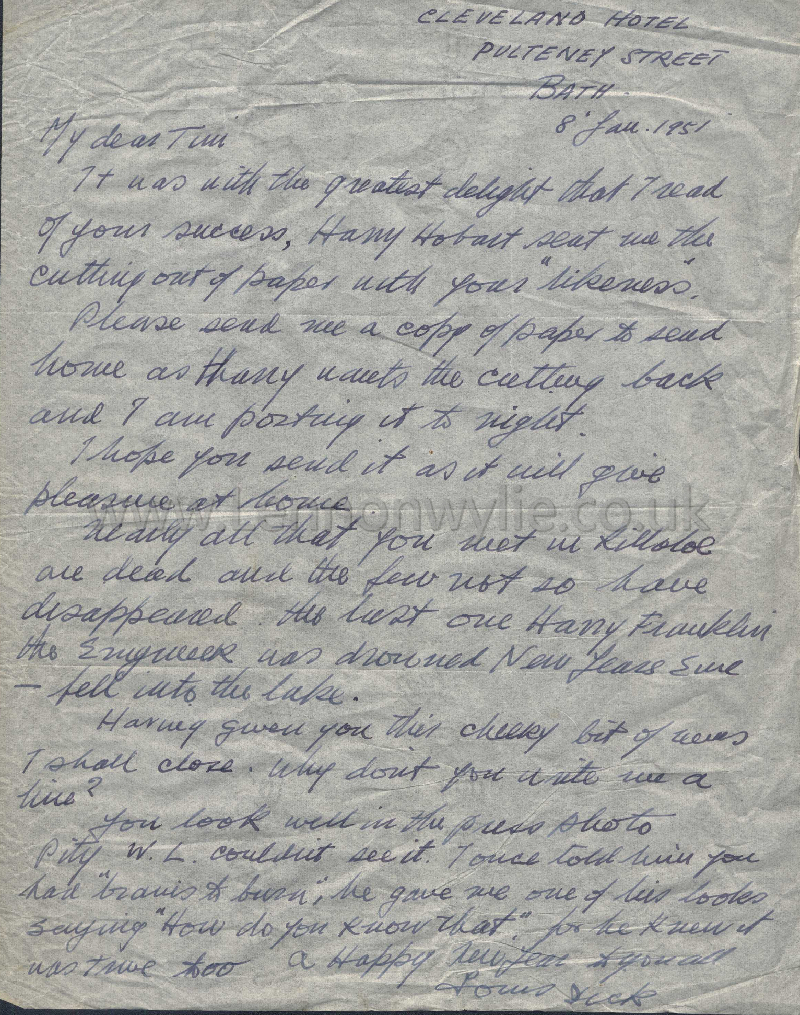 CLEVELAND HOTEL
PULTENEY STREET
BATH.
8' Jan. 1951
My dear Tim
It was with the greatest delight that I read
of your success, Harry Hobart sent me the
cutting out of paper with your "likeness".
Please send me a copy of paper to send
home as Harry wants the cutting back
and I am posting it to night.
I hope you send it as it will give
pleasure at home.
Nearly all that you met in Killaloe
are dead and the few not so have
disappeared. The last one Harry Franklin
the Engineer was drowned New Years Eve
— fell into the lake.
Having given you this cheeky bit of news
I shall close. Why don't you write me a
line?
You look well in the press photo
Pity W. L. couldn't see it. I once told him you
had "brains to burn", he gave me one of his looks
saying "How do you know that". for he knew it
was true too a Happy New Year to you all
Yours Dick
www.lennonwylie.co.uk